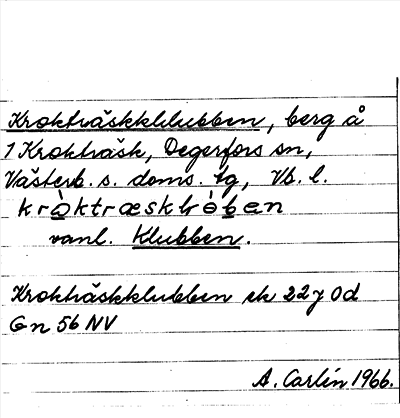 Krokträskklubben, berg å
1 Krokträsk, Degerfors sn,
Västerb. s. doms. tg, Vb. l.
kròktræsklòben
vanl. Klubben.
Krokträskklubben ek 22 7 0d
Gn 56 NV
A. Carlin 1966.